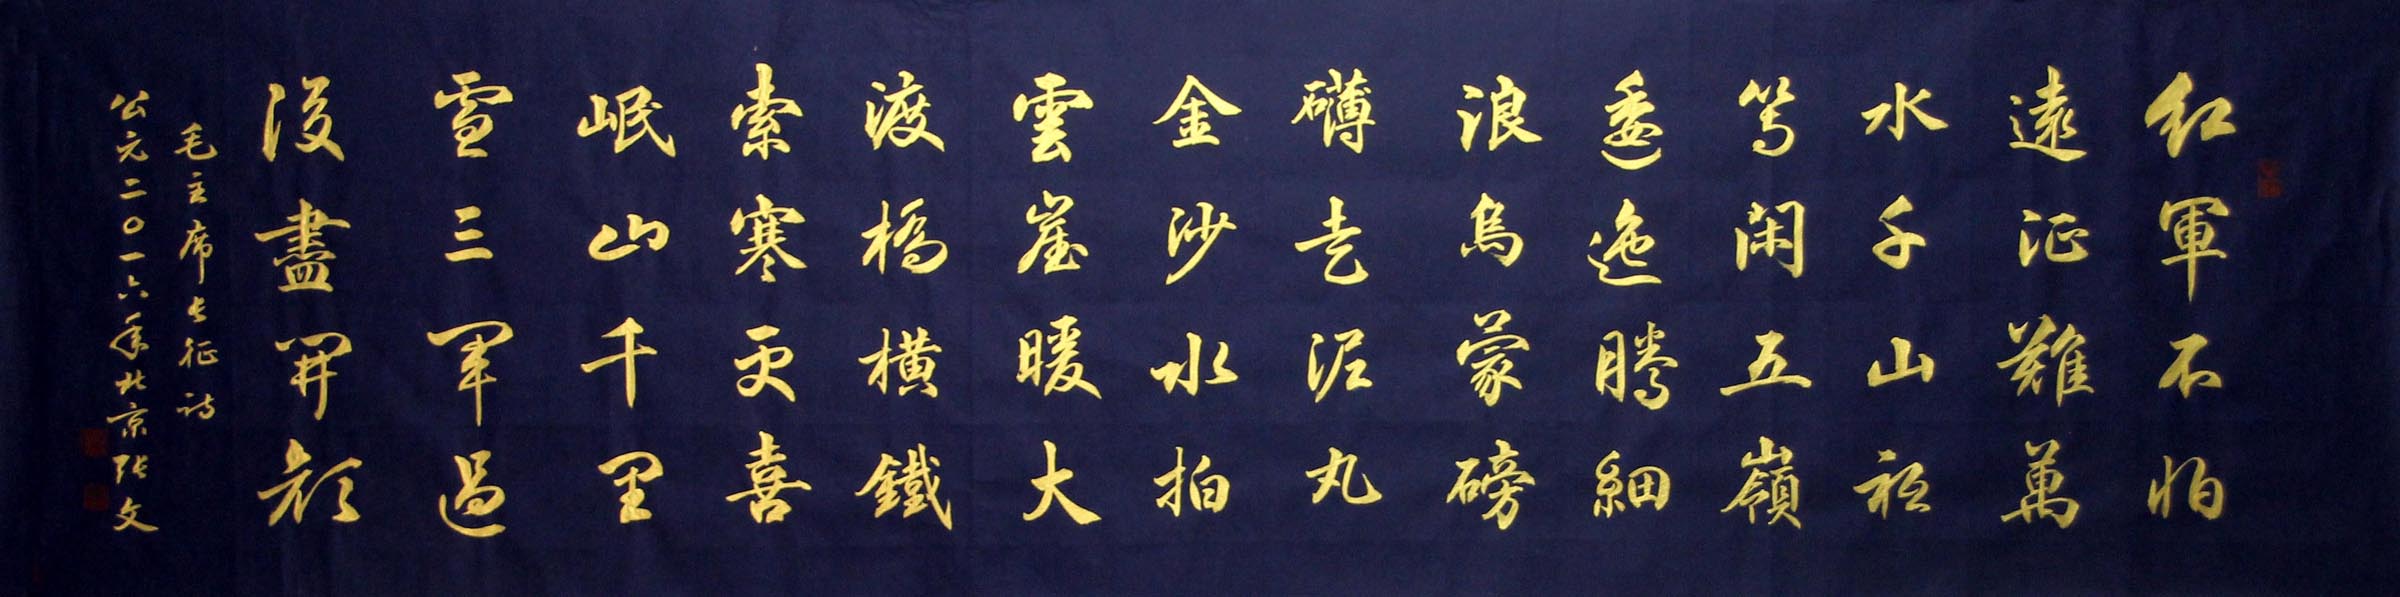 紅軍不怕
遠征難萬
水千山衹
等閑五嶺
逶迤騰細
浪烏蒙磅
礴走泥丸
金沙水拍
雲崖暖大
渡橋橫鐵
索寒更喜
岷山千里
雪三軍過
後盡開顏
毛主席長征詩
公元二〇一六年北京張文